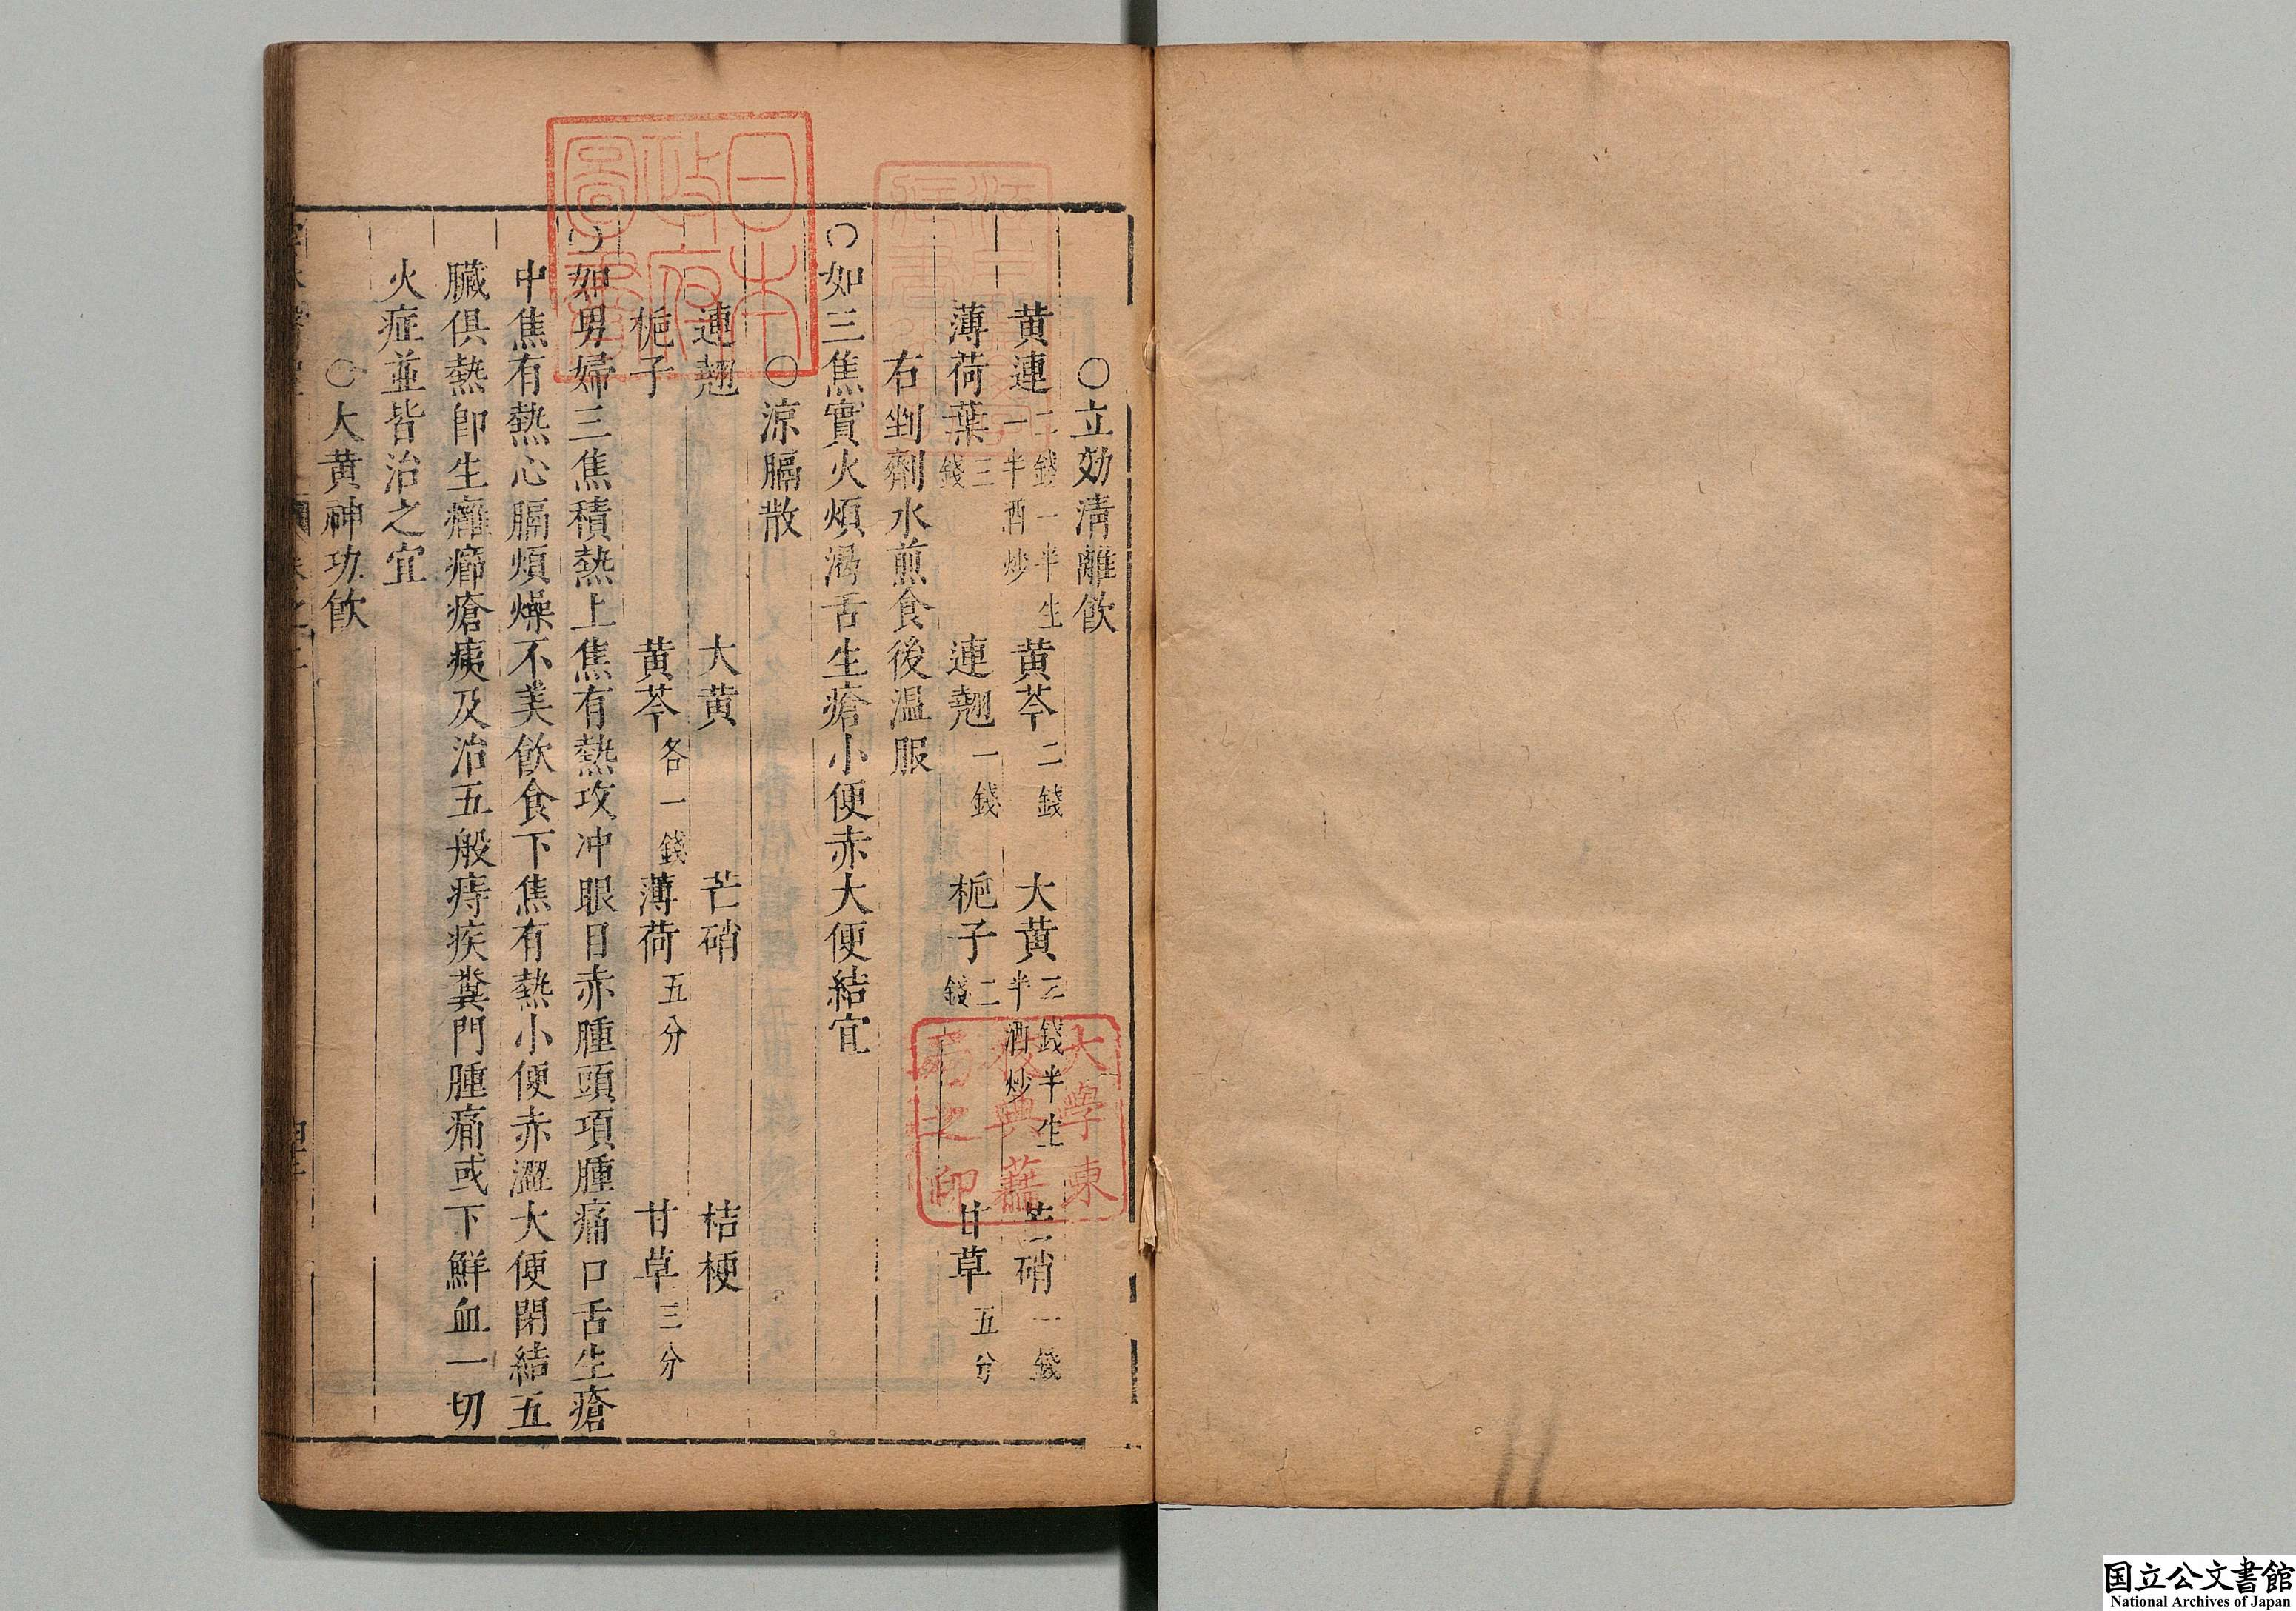 ○立効清離飲
黄連二錢一半生一半酒炒 黄芩二錢 大黄三錢半生半酒炒 芒硝一錢
薄荷葉三錢 連翹一錢 梔子二錢 甘草五分
右剉劑水煎食後温服
○如三焦實火煩渴舌生瘡小便赤大便結宜
○涼膈散
連翹 大黄 芒硝 桔梗
梔子 黄芩各一錢 薄荷五分 甘草三分
○如男婦三焦積熱上焦有熱攻冲眼目赤腫頭項腫痛口舌生瘡
中焦有熱心膈煩燥不美飲食下焦有熱小便赤澀大便閉結五
臟俱熱即生癰癤瘡痍及治五般痔疾糞門腫痛或下鮮血一切
火症並皆治之宜
○大黄神功飲
日本
政府
圖書
大學東
校典籍
局之印
国立公文書館
National Archives of Japan